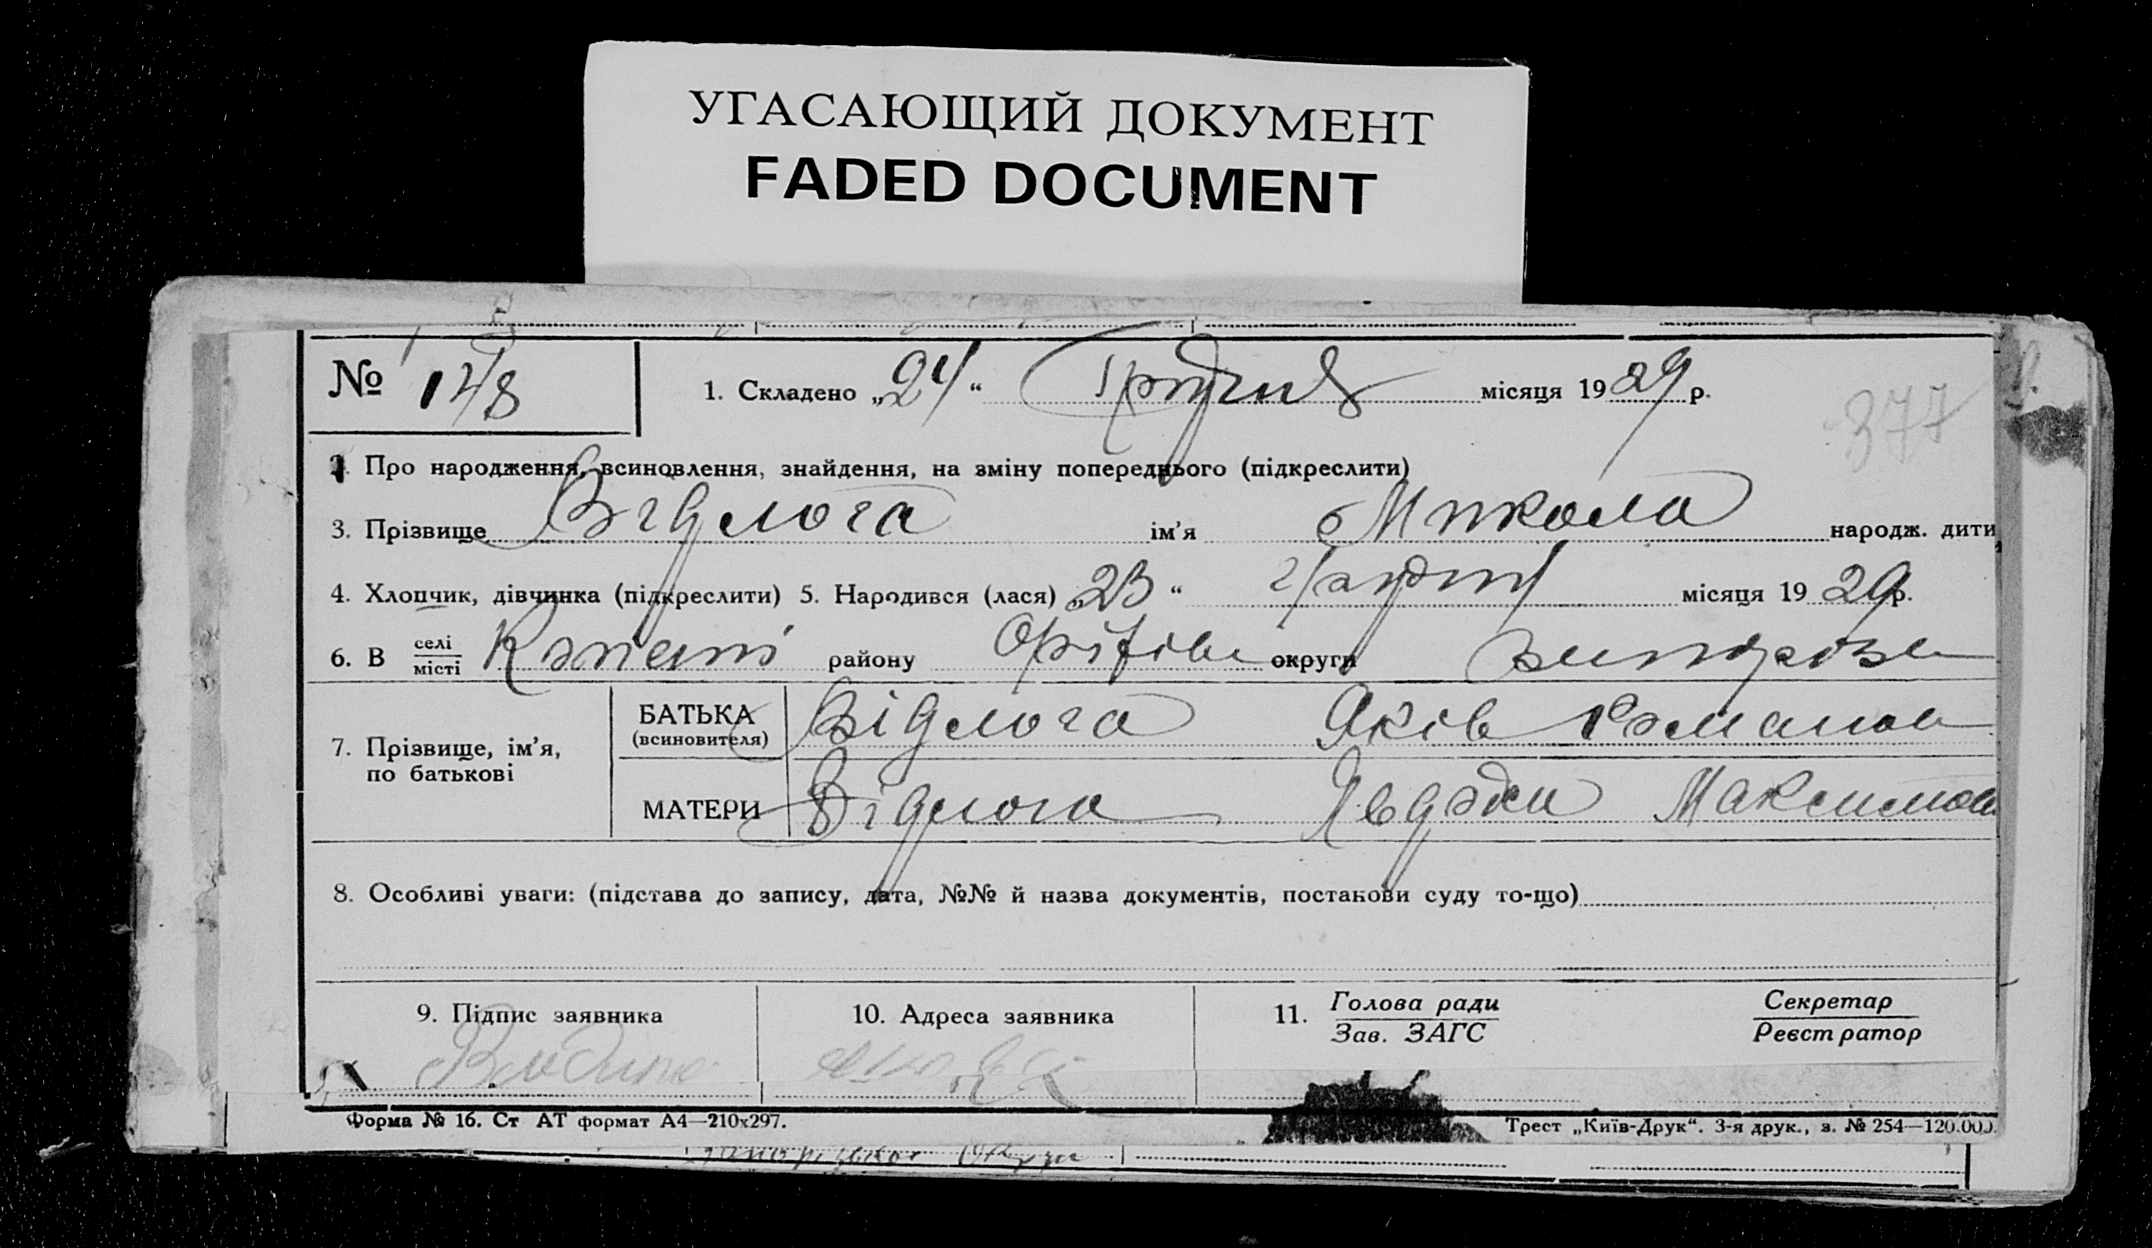 УГАСАЮЩИЙ ДОКУМЕНТ
FADED DOCUMENT
№ 148
1. Складено „24“ Грудня місяця 1929 р.
377
2. Про народження, всиновлення, знайдення, на зміну попереднього (підкреслити)
3. Прізвище Відлога ім'я Микола народж. дити
4. Хлопчик, дівчинка (підкреслити) 5. Народився (лася) „23“ місяця 1929 р.
6. В селі/місті району округи
7. Прізвище, ім'я, по батькові
БАТЬКА (всиновителя) Відлога Яків Романов
МАТЕРИ Відлога Максимов
8. Особливі уваги: (підстава до запису, дата, №№ й назва документів, постанови суду то-що)
9. Підпис заявника
10. Адреса заявника
11. Голова ради/Зав. ЗАГС
Секретар/Реєстратор
Форма № 16. Ст АТ формат А4—210x297.
Трест „Київ-Друк“. 3-я друк., з. № 254—120.000.